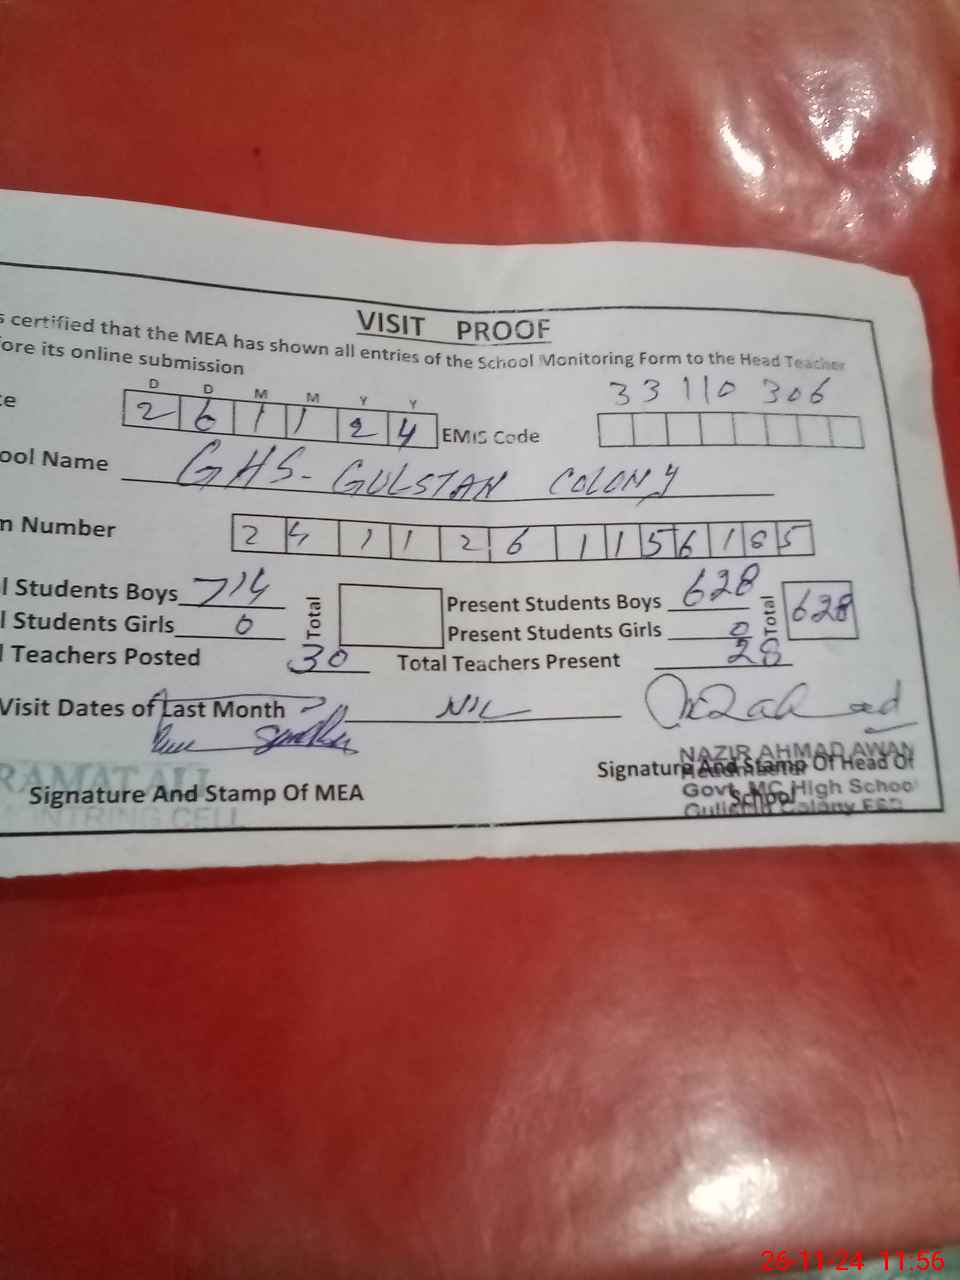 VISIT PROOF
s certified that the MEA has shown all entries of the School Monitoring Form to the Head Teacher
ore its online submission
D D M M Y Y
e 2 6 1 1 2 4 EMIS Code 33110306
ool Name GHS-GULSTAN COLONY
m Number 2 4 1 1 2 6 1 1 5 6 1 8 5
l Students Boys 714 Total Present Students Boys 628 Total 628
l Students Girls 0 Present Students Girls 0
l Teachers Posted 30 Total Teachers Present 28
Visit Dates of Last Month NIL
NAZIR AHMAD AWAN
Signature And Stamp Of Head Of
School
Headmaster
Govt. MC High School
Colony FSD
RAMAT ALI
Signature And Stamp Of MEA
NTRING CELL
26-11-24 11:56